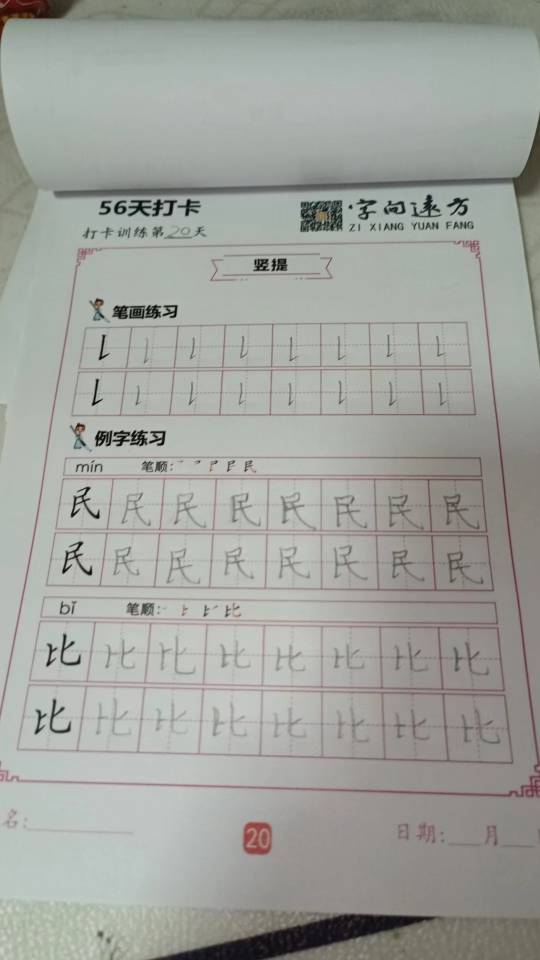 56天打卡
字向远方
打卡训练第20天
ZI XIANG YUAN FANG
竖提
笔画练习
例字练习
mín 笔顺:
民民民民民民民民
民民民民民民民民
bǐ 笔顺:
比比比比比比比比
比比比比比比比比
名: 日期: 月
20